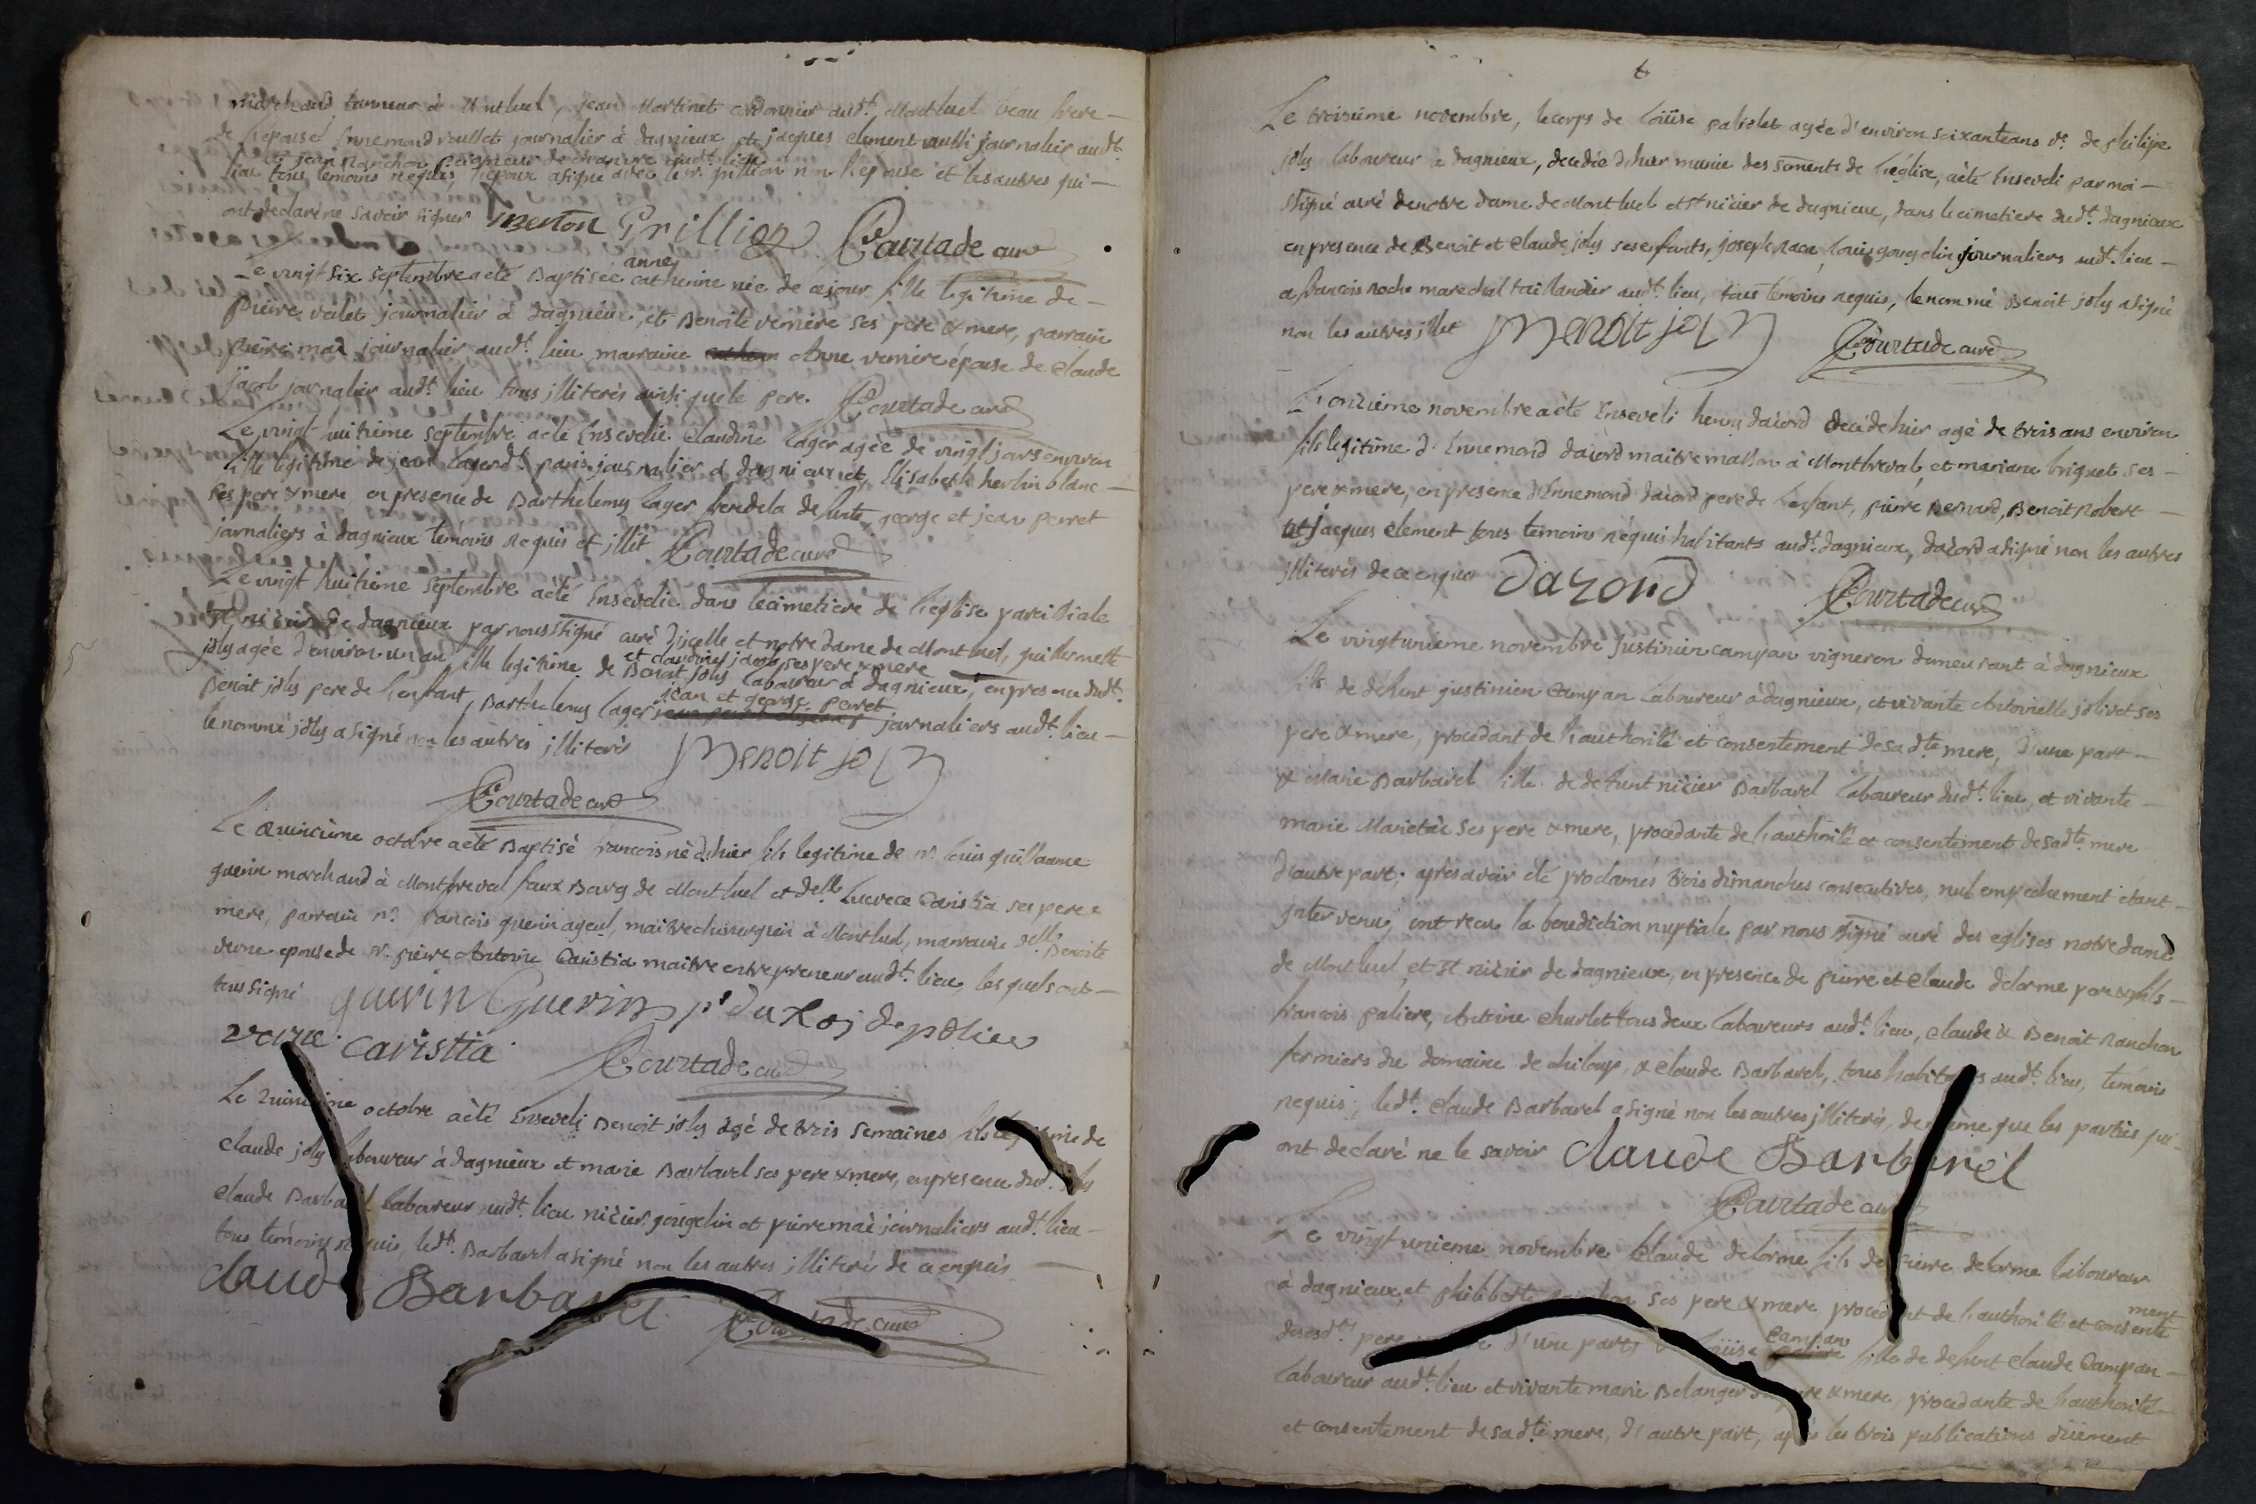 marchand tanneur à Montluel, jean Martinet cordonnier aud.t Montluel beau frere
de l'épouse, Ennemond voullet journalier à dagnieux et jacques clement aussi journalier aud.t
et jean Ranchon peigneur de chanvre aud.t lieu
lieu tous temoins requis, l'epoux a signé avec le sr. grillion non l'epouse et les autres qui
ont declaré ne savoir signer Berton Grillion Courtade curé
anne
Le vingt six septembre a eté Baptisée catherine née de ce jour fille legitime de
pierre valet journalier à dagnieux, et Benoite verriere ses pere & mere, parrain
pierre maré journalier aud.t lieu marraine Anne verriere épouse de Claude
jacob journalier aud.t lieu tous illiterés ainsi que le pere. Courtade curé
Le vingt huitième septembre a eté Ensevelie Claudine lager agée de vingt jours environ
fille legitime de jean lager d.t paris journalier à dagnieux et Elisabeth herlin blanc
ses pere & mere en presence de Barthelemy lager frere de la defunte, george et jean perret
jornaliers à dagnieux temoins requis et illit Courtade curé
Le vingt huitième septembre a eté Ensevelie dans le cimetiere de l'eglise paroissiale
St nicier de dagnieux par nous ssigné curé d'icelle et notre dame de Montluel, guillermette
et claudine jacob ses pere & mere
joly agée d'environ un an fille legitime de Benoit joly laboureur à dagnieux, en presence dud.t
jean et george perret
Benoit joly pere de l'enfant, Barthelemy lager journaliers aud.t lieu
le nommé joly a signé non les autres illiterés Benoit joly
Courtade curé
Le quinzieme octobre a eté Baptisé francois né d'hier fils legitime de sr. louis guillaume
guerin marchand à Montbreval faux Bourg de Montluel et delle. Lucrece Caristia ses pere &
mere, parrain sr. francois guerin ayeul, maitre chirurgien à Montluel, marraine delle. Benoite
verne epouse de sr. pierre Antoine Caristia maitre entrepreneur aud.t lieu, lesquels ont
tous signé guerin Guerin pr du Roi de police
verne caristia Courtade curé
Le quinzieme octobre a eté Enseveli Benoit joly agé de trois semaines fils legitime de
Claude joly laboureur à dagnieux et marie Barbarel ses pere & mere, en presence dud.t joly
Claude Barbarel laboureur aud.t lieu nicier gougelin et pierre maré journaliers aud.t lieu
tous temoins requis, led.t Barbarel a signé non les autres illiterés de ce enquis
Claude Barbarel Courtade curé
Le troisieme novembre, le corps de Loüise agée d'environ soixante ans v.e de philipe
joly laboureur à dagnieux, decedée d'hier munie des sacments de l'église, a eté Enseveli par moi
ssigné curé de notre dame de Montluel et st nicier de dagnieux, dans le cimetiere dud.t dagnieux
en presence de Benoit et Claude joly ses enfants, joseph Raca, louis gougelin journaliers aud.t lieu
& francois Roche marechal taillandier aud.t lieu, tous temoins requis, le nommé Benoit joly a signé
non les autres illet Benoit joly Courtade curé
L'onzieme novembre a eté Enseveli henry dazord decedé hier agé de trois ans environ
fils legitime d'Ennemond dazord maitre masson à Montbreval, et mariane briguet ses
pere & mere, en presence d'Ennemond dazord pere de l'enfant, pierre Bernard, Benoit Robert
et jacques clement tous temoins requis habitants aud.t dagnieux, dazord a signé non les autres
illiterés de ce enquis Dazord Courtade curé
Le vingt unieme novembre justinien campan vigneron demeurant à dagnieux
fils de défunt justinien Campan laboureur à dagnieux, et vivante Antoinette jolivet ses
pere & mere, procedant de l'authorité et consentement de sad.te mere, d'une part
& Marie Barbarel fille de defunt nicier Barbarel laboureur dud.t lieu, et vivante
marie Marietaz ses pere & mere, procedante de l'authorité et consentement de sad.te mere
d'autre part; après avoir eté proclamés trois dimanches consecutives, nul empechement etant
intervenu, ont recu la benediction nuptiale par nous ssigné curé des eglises notre dame
de Montluel, et st nicier de dagnieux, en presence de pierre et Claude delorme pere & fils
francois paliere, Antoine Charlet tous deux laboureurs aud.t lieu, Claude & Benoit Ranchon
fermiers du domaine de chiloup, & Claude Barbarel, tous habitants aud.t lieu, temoins
requis; led.t Claude Barbarel a signé non les autres illiterés, de meme que les parties qui
ont declaré ne le savoir Claude Barbarel
Courtade curé
Le vingt unieme novembre Claude delorme fils de pierre delorme laboureur
à dagnieux, et philiberte ses pere & mere procedant de l'authorité et consente
ment
desesd.ts pere d'une part, & Loüise Campan fille de defunt Claude Campan
laboureur aud.t lieu et vivante marie Belanger ses pere & mere, procedante de l'authorité
et consentement de sad.te mere, d'autre part, après les trois publications düement